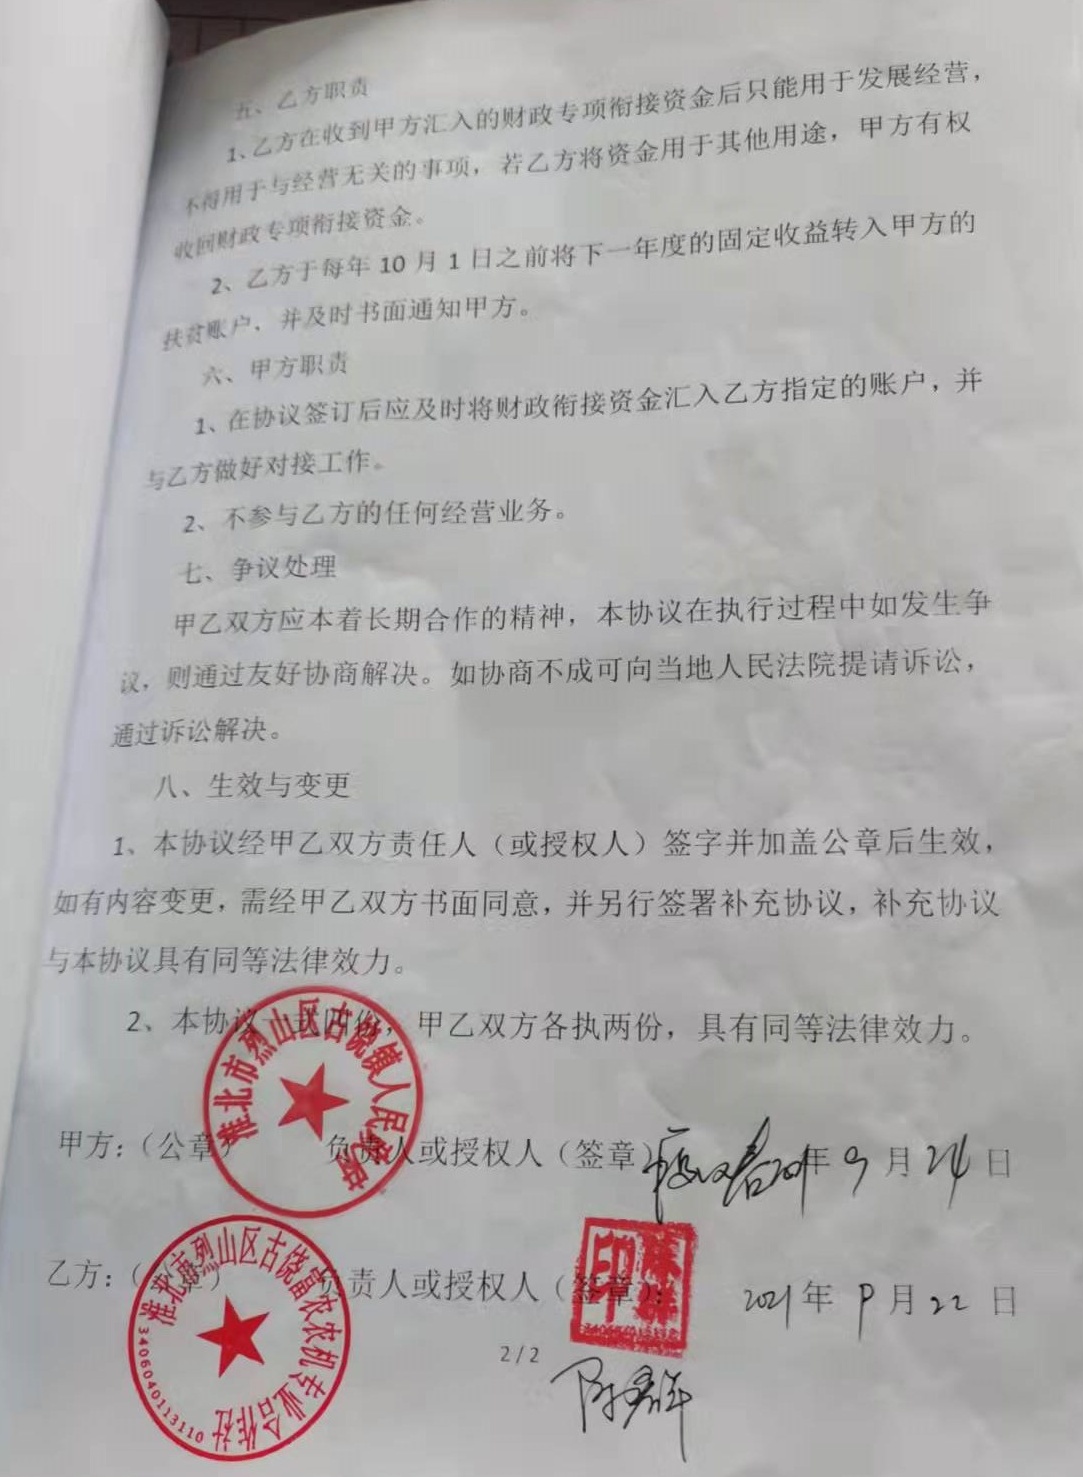 五、乙方职责
1、乙方在收到甲方汇入的财政专项衔接资金后只能用于发展经营，
不得用于与经营无关的事项，若乙方将资金用于其他用途，甲方有权
收回财政专项衔接资金。
2、乙方于每年 10 月 1 日之前将下一年度的固定收益转入甲方的
扶贫账户，并及时书面通知甲方。
六、甲方职责
1、在协议签订后应及时将财政衔接资金汇入乙方指定的账户，并
与乙方做好对接工作。
2、不参与乙方的任何经营业务。
七、争议处理
甲乙双方应本着长期合作的精神，本协议在执行过程中如发生争
议，则通过友好协商解决。如协商不成可向当地人民法院提请诉讼，
通过诉讼解决。
八、生效与变更
1、本协议经甲乙双方责任人（或授权人）签字并加盖公章后生效，
如有内容变更，需经甲乙双方书面同意，并另行签署补充协议，补充协议
与本协议具有同等法律效力。
2、本协议一式四份，甲乙双方各执两份，具有同等法律效力。
淮北市烈山区古饶镇人民政府
甲方：（公章） 负责人或授权人（签章） 2021年 9 月 24 日
淮北市烈山区古饶富农农机专业合作社
3406040113110
乙方：（公章） 负责人或授权人（签章）： 2021年 9 月 22 日
印
2 / 2